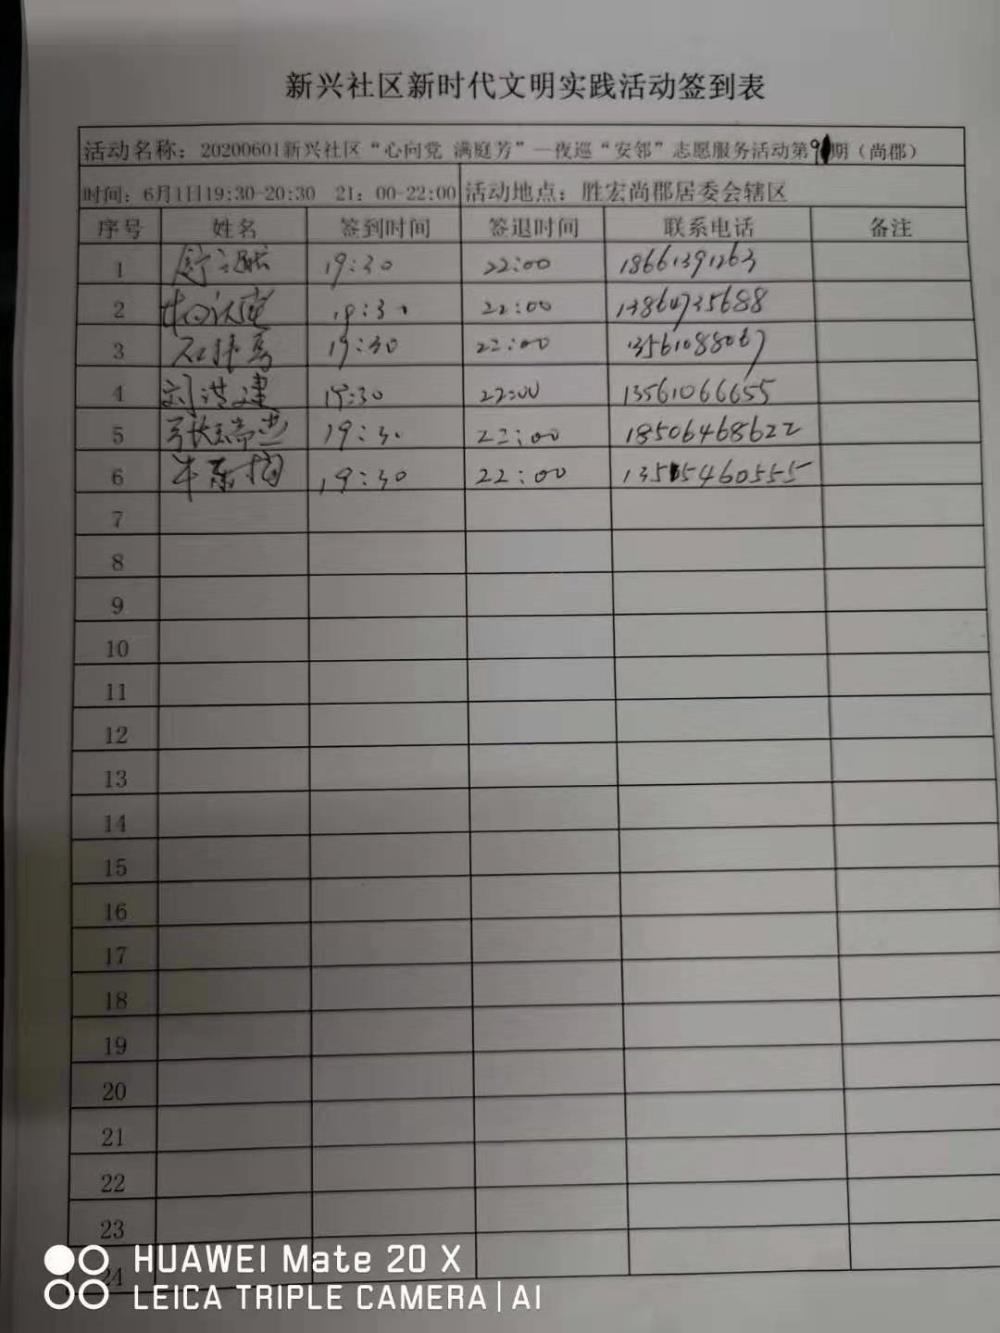 新兴社区新时代文明实践活动签到表
活动名称：20200601新兴社区“心向党 满庭芳”—夜巡“安邻”志愿服务活动第9期（尚郡）
时间：6月1日19:30-20:30 21：00-22:00 活动地点：胜宏尚郡居委会辖区
序号 姓名 签到时间 签退时间 联系电话 备注
1 19:30 22:00 18661391263
2 19:30 22:00
3 19:30 22:00 13561088067
4 刘洪建 19:30 22:00 13561066655
5 19:30 22:00 18506468622
6 19:30 22:00 13515460555
7
8
9
10
11
12
13
14
15
16
17
18
19
20
21
22
23
24
HUAWEI Mate 20 X
LEICA TRIPLE CAMERA | AI